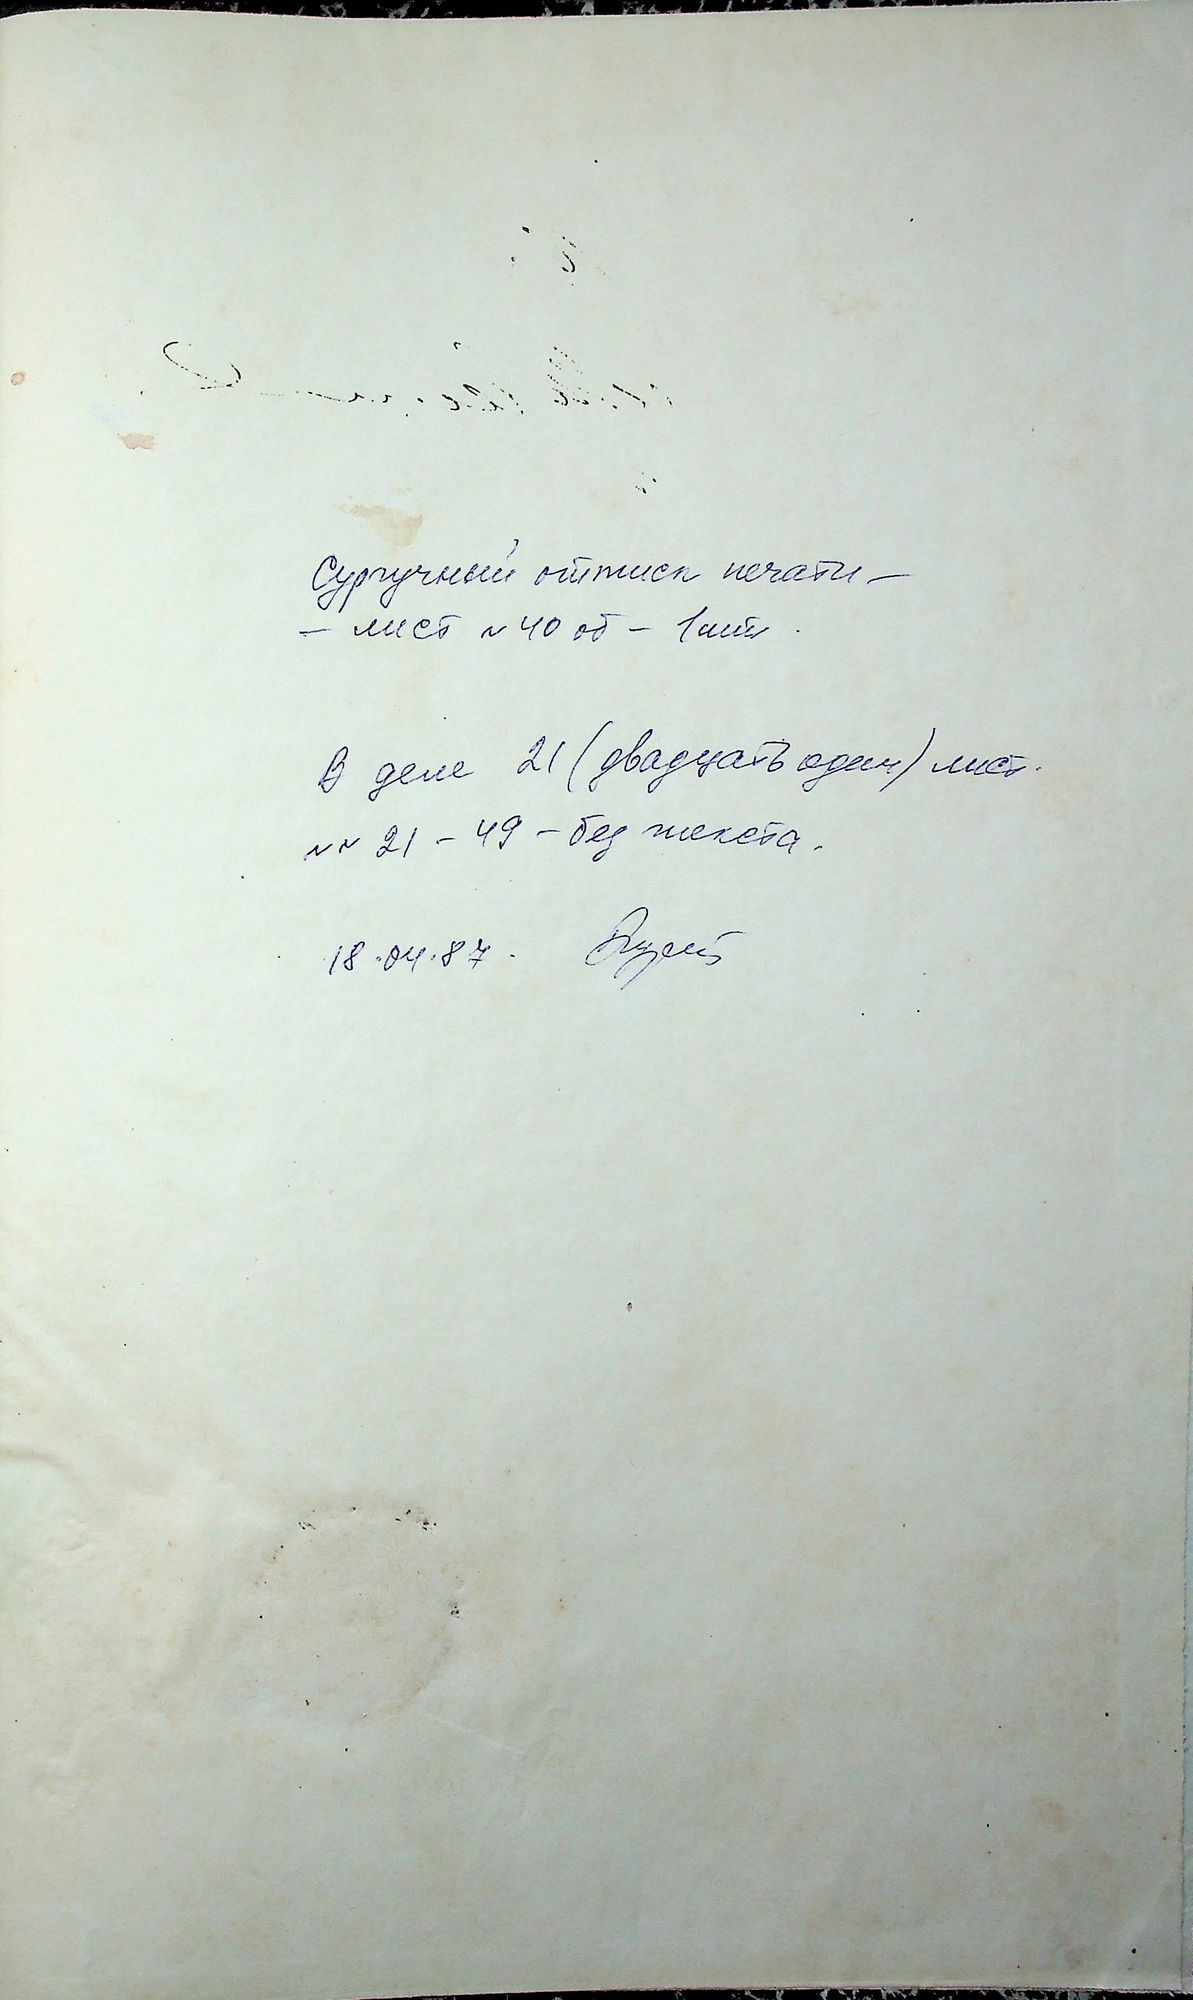 Сургучный оттиск печати –
– лист № 40 об – 1 шт.
В деле 21 (двадцать один) лист.
№№ 21 – 49 – без текста.
18.04.87.